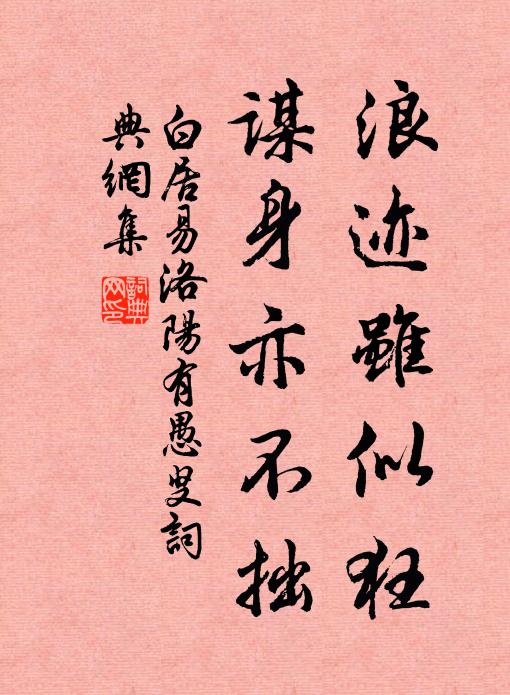 浪迹雖似狂
謀身亦不拙
白居易洛陽有愚叟詞
典網集
詞典
网印